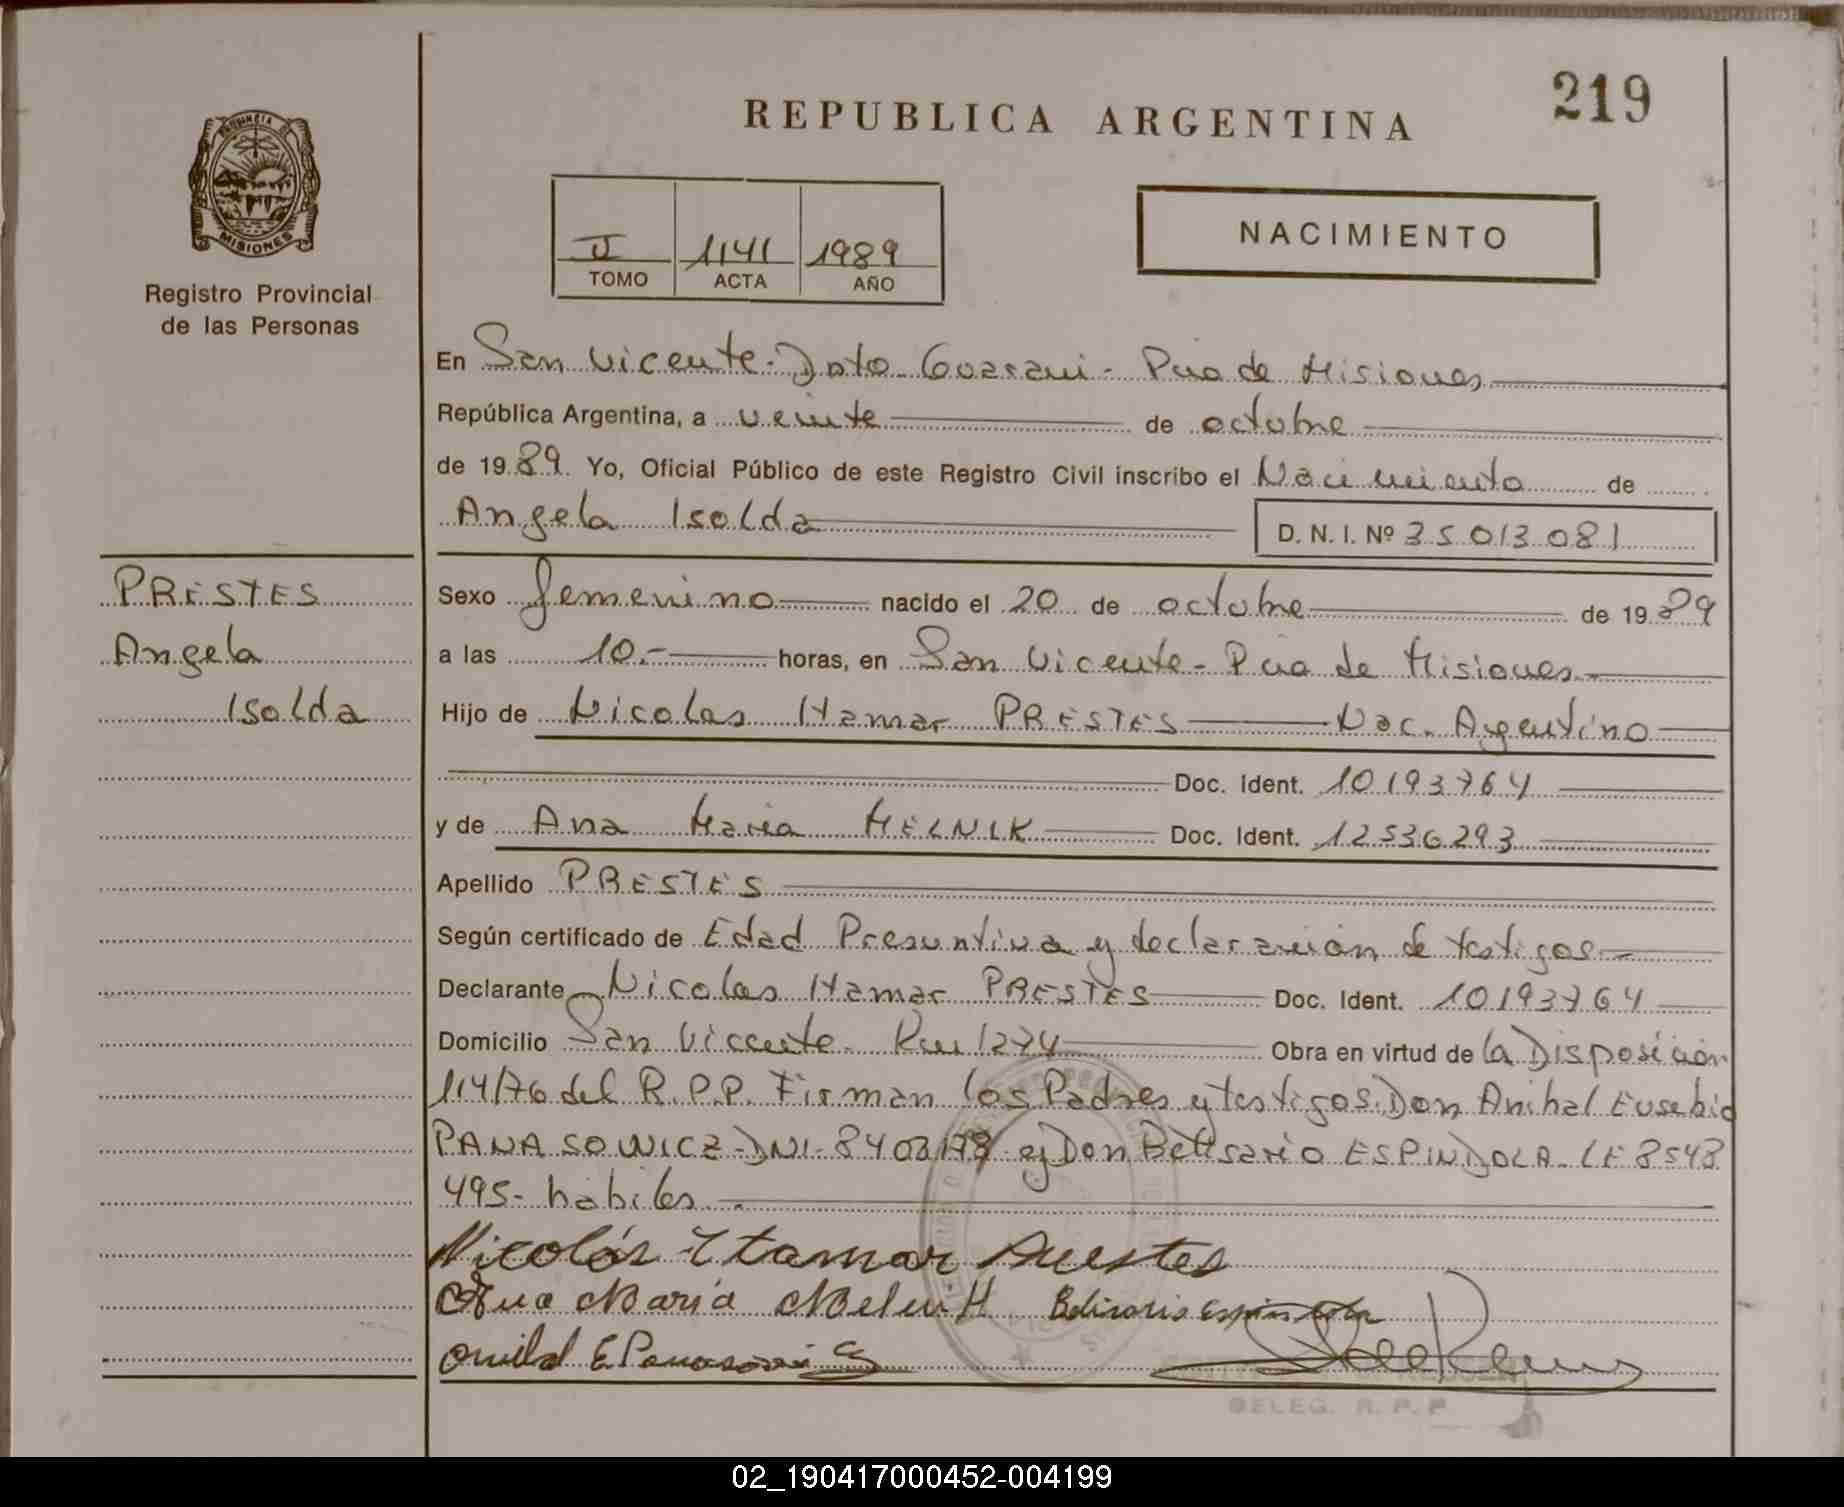 219
REPUBLICA ARGENTINA
PROVINCIA DE
MISIONES
Registro Provincial
de las Personas
II 1141 1989
TOMO ACTA AÑO
NACIMIENTO
En San Vicente - Dpto Guarani - Pcia de Misiones
República Argentina, a veinte de octubre
de 1989. Yo, Oficial Público de este Registro Civil inscribo el Nacimiento de
Angela Isolda D. N. I. Nº 35 013 081
PRESTES
Angela
Isolda
Sexo femenino nacido el 20 de octubre de 1989
a las 10.- horas, en San Vicente - Pcia de Misiones
Hijo de Nicolas Itamar PRESTES Nac. Argentino
Doc. Ident. 10193764
y de Ana Maria MELNIK Doc. Ident. 12536293
Apellido PRESTES
Según certificado de Edad Presuntiva y declaración de testigos
Declarante Nicolas Itamar PRESTES Doc. Ident. 10193764
Domicilio San Vicente - Km 1274 Obra en virtud de la Disposición
114/76 del R.P.P. Firman los Padres y testigos: Don Anibal Eusebio
PANASOWICZ - DNI - y Don Belisario ESPINDOLA - LE 8548
495 - habiles.
Nicolás Itamar Prestes
Ana Maria Melnik Belisario Espindola
E Panasowicz
DELEG. R. P. P.
02_190417000452-004199